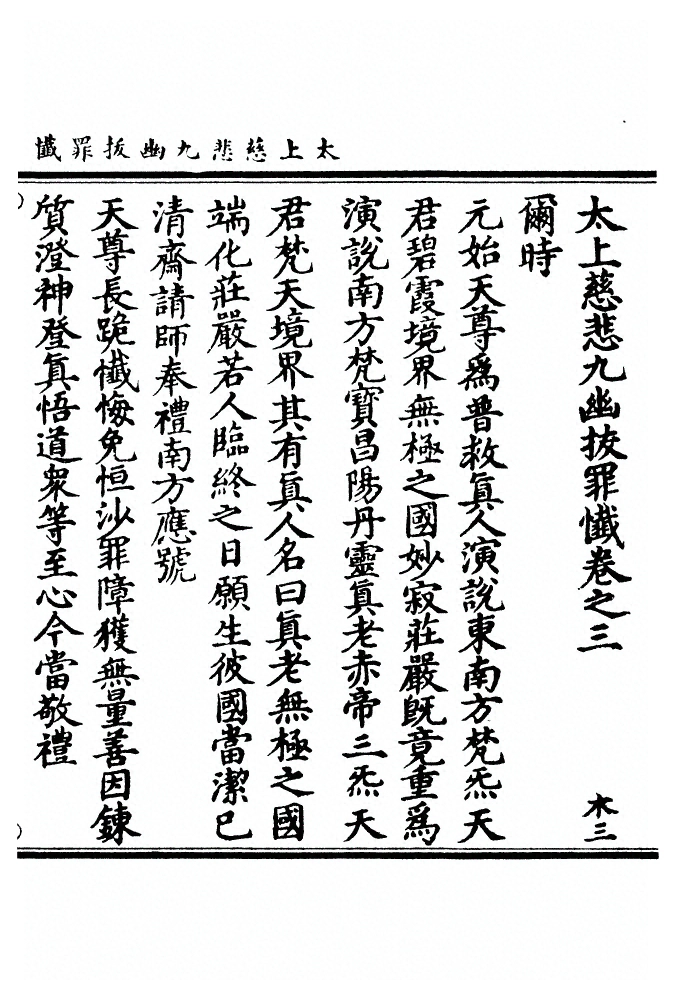 太上慈悲九幽拔罪懺
太上慈悲九幽拔罪懺卷之三
木三
爾時
元始天尊爲普救眞人演說東南方梵炁天
君碧霞境界無極之國妙寂莊嚴旣竟重爲
演說南方梵寶昌陽丹靈眞老赤帝三炁天
君梵天境界其有眞人名曰眞老無極之國
端化莊嚴若人臨終之日願生彼國當潔已
清齋請師奉禮南方應號
天尊長跪懺悔免恒沙罪障獲無量善因鍊
質澄神登眞悟道衆等至心今當敬禮